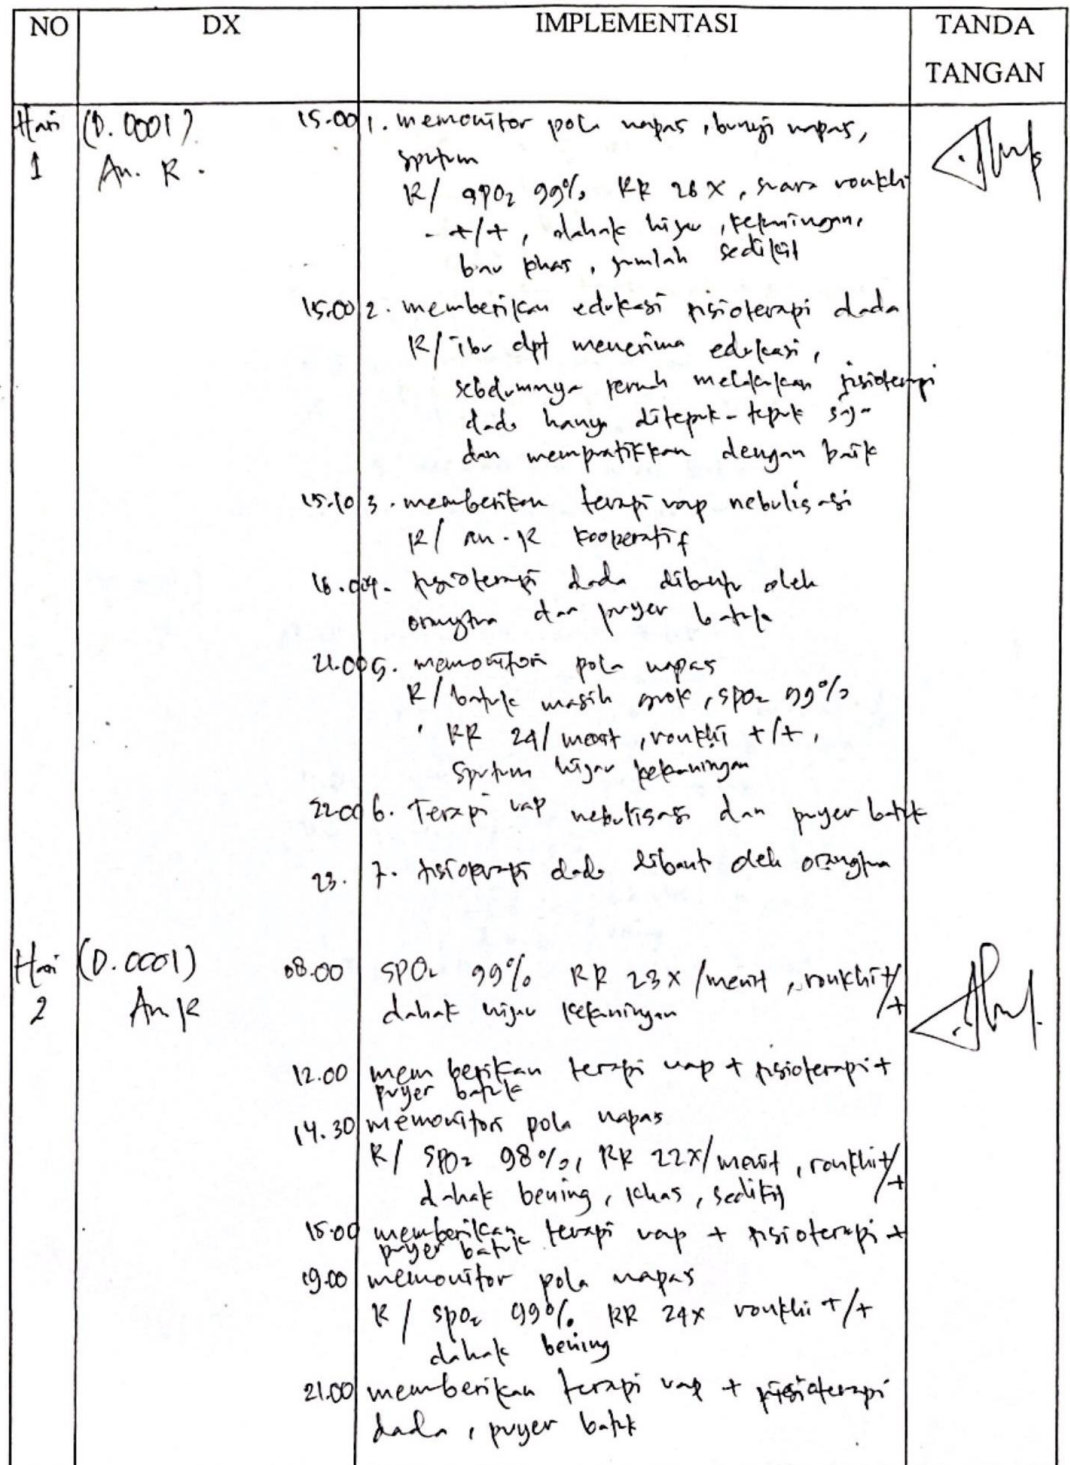 NO DX IMPLEMENTASI TANDA
TANGAN
Hari (D. 0001) 15.00 1. memonitor pola napas, bunyi napas,
1 An. R. sputum
R/ SPO2 99% RR 26 X, suara ronkhi
+/+, dahak hijau, kekuningan,
bau khas, jumlah sedikit
15.00 2. memberikan edukasi fisioterapi dada
R/ Ibu dpt menerima edukasi,
sebelumnya pernah melakukan fisioterapi
dada hanya ditepuk-tepuk saja
dan mempratikkan dengan baik
15.10 3. memberikan terapi uap nebulisasi
R/ An. R kooperatif
16.00 4. fisioterapi dada dibantu oleh
orangtua dan puyer batuk
21.00 5. memonitori pola napas
R/ batuk masih grok, SPO2 99%
RR 24/ menit, ronkhi +/+,
Sputum hijau kekuningan
22.00 6. Terapi uap nebulisasi dan puyer batuk
23. 7. fisioterapi dada dibantu oleh orangtua
Hari (D. 0001) 08.00 SPO2 99% RR 23 X /menit, ronkhi +/+
2 An R dahak hijau kekuningan
12.00 memberikan terapi uap + fisioterapi +
puyer batuk
14.30 memonitori pola napas
R/ SPO2 98%, RR 22X/menit, ronkhi +/+
dahak bening, khas, sedikit
15.00 memberikan terapi uap + fisioterapi +
puyer batuk
19.00 memonitor pola napas
R/ SPO2 99%. RR 24X ronkhi +/+
dahak bening
21.00 memberikan terapi uap + fisioterapi
dada, puyer batuk